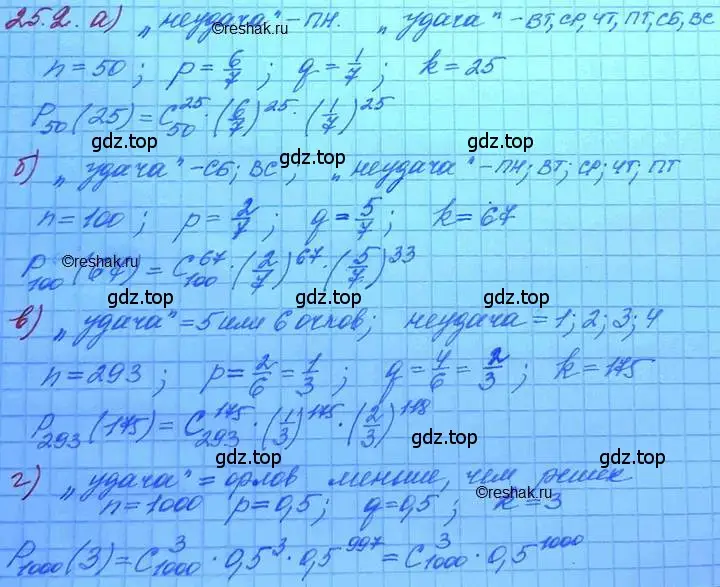 25.2. а) „неудача" – ПН. „удача" – ВТ, СР, ЧТ, ПТ, СБ, ВС
©reshak.ru
n = 50; p = 6/7; q = 1/7; k = 25
P₅₀(25) = C₅₀²⁵ · (6/7)²⁵ · (1/7)²⁵
gdz.top gdz.top gdz.top
б) „удача" – СБ; ВС; „неудача" – ПН; ВТ; СР; ЧТ; ПТ
n = 100; p = 2/7; q = 5/7; k = 67
©reshak.ru
P₁₀₀(67) = C₁₀₀⁶⁷ · (2/7)⁶⁷ · (5/7)³³
gdz.top gdz.top gdz.top
в) „удача" = 5 или 6 очков; неудача = 1; 2; 3; 4
n = 293; p = 2/6 = 1/3; q = 4/6 = 2/3; k = 175
P₂₉₃(175) = C₂₉₃¹⁷⁵ · (1/3)¹⁷⁵ · (2/3)¹¹⁸
gdz.top gdz.top gdz.top
г) „удача" = орлов меньше, чем решек
©reshak.ru
n = 1000 p = 0,5; q = 0,5; k = 3
P₁₀₀₀(3) = C₁₀₀₀³ · 0,5³ · 0,5⁹⁹⁷ = C₁₀₀₀³ · 0,5¹⁰⁰⁰
gdz.top gdz.top gdz.top